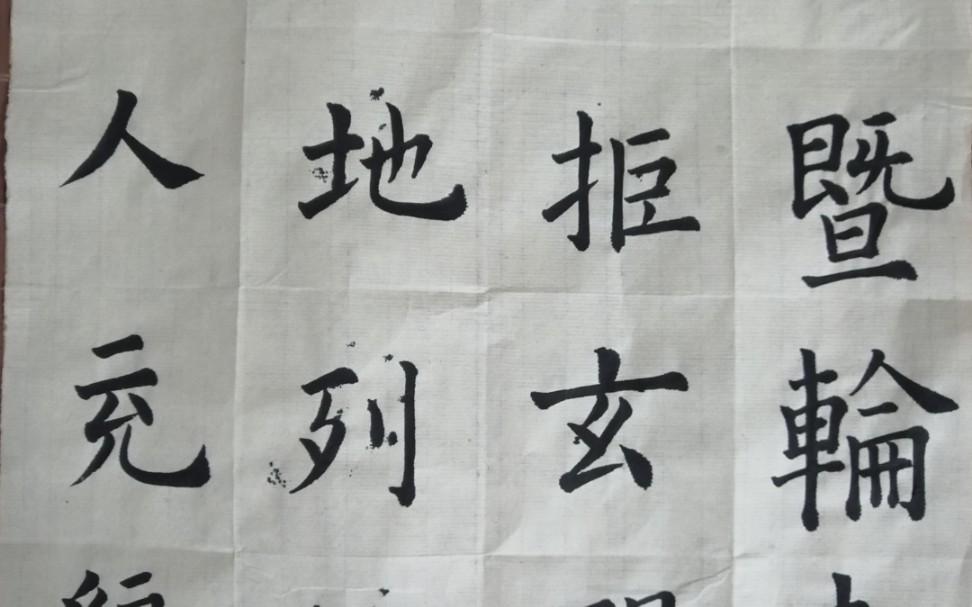 暨輪
拒玄
地列
人充